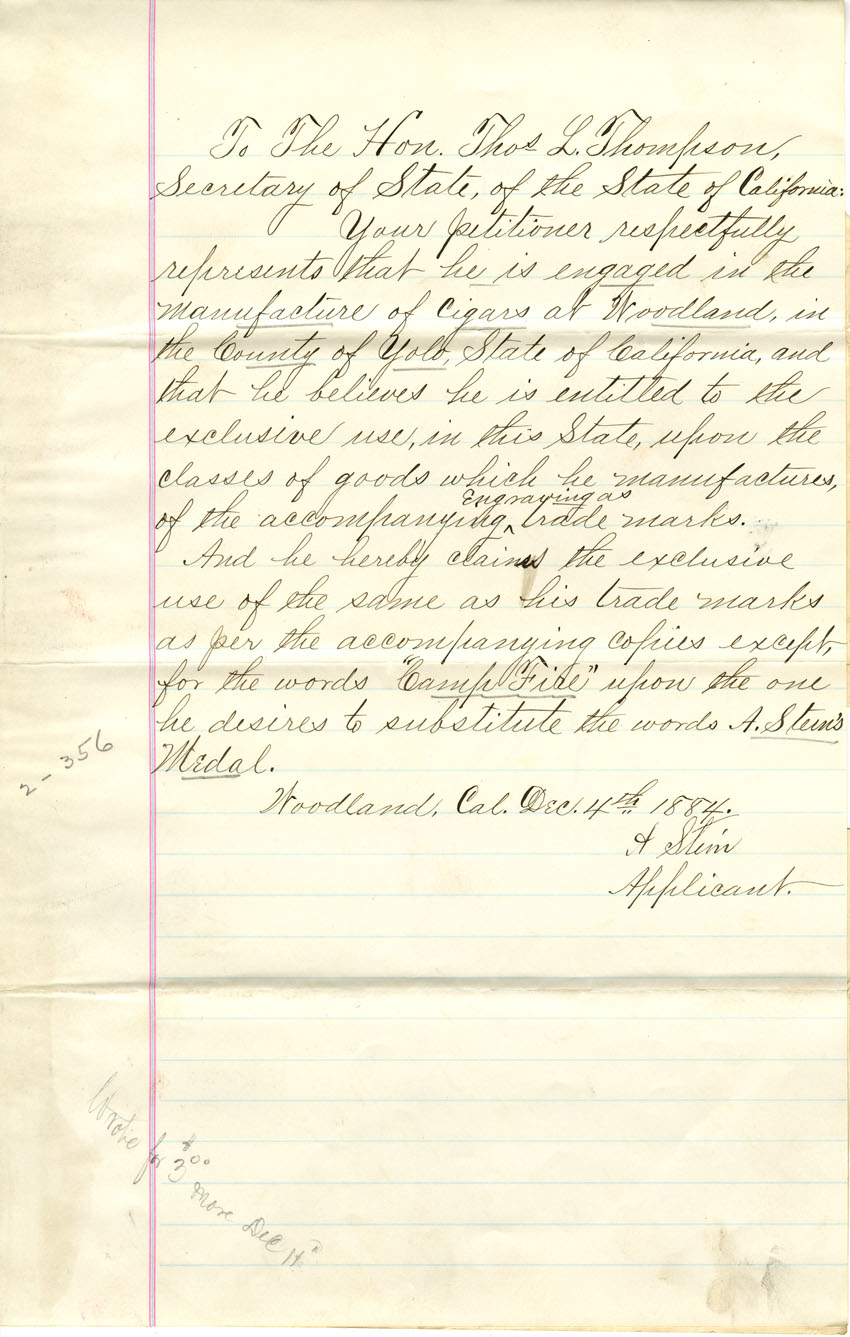 To The Hon. Thos L. Thompson,
Secretary of State, of the State of California:
Your petitioner respectfully
represents that he is engaged in the
manufacture of Cigars at Woodland, in
the County of Yolo, State of California, and
that he believes he is entitled to the
exclusive use, in this State, upon the
classes of goods which he manufactures,
Engraving as
of the accompanying ^ trade marks.
And he hereby claims the exclusive
use of the same as his trade marks
as per the accompanying copies except,
for the words "Camp Fire" upon the one
he desires to substitute the words A. Stein's
Medal.
Woodland, Cal. Dec. 4th 1884.
A Stein
Applicant.
2-356
Wrote for $3.00
more Dec